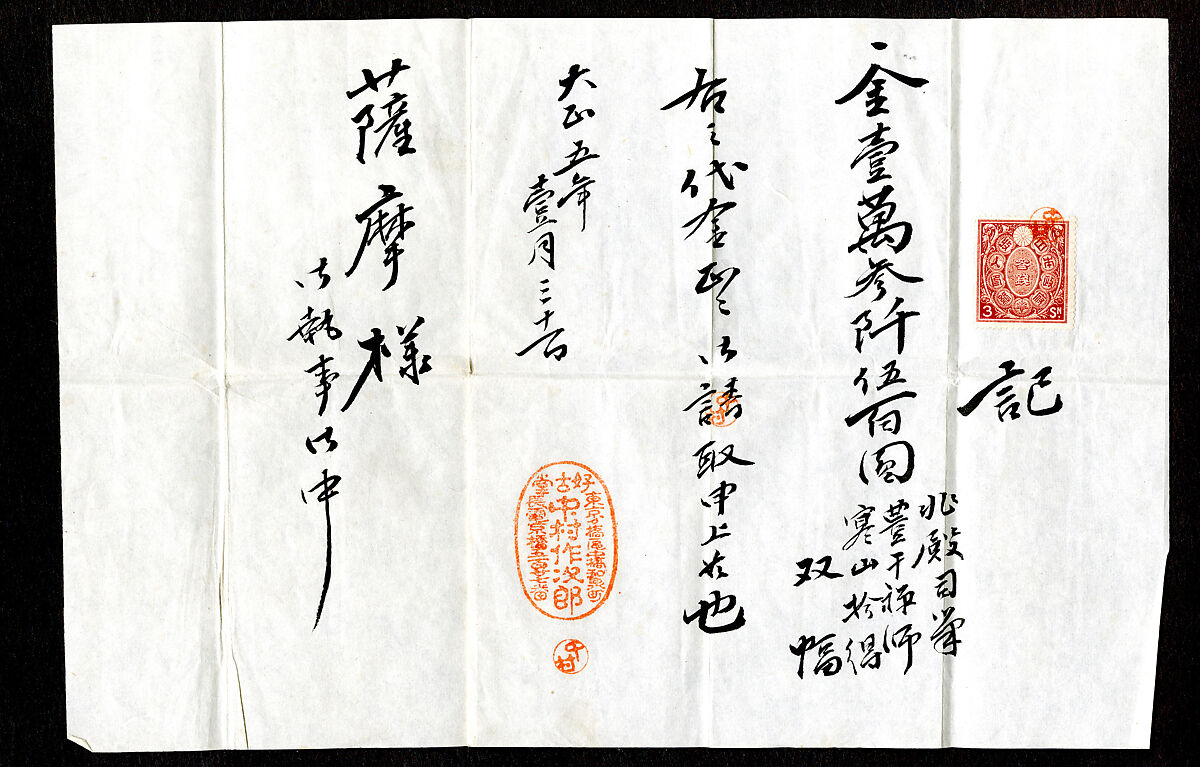 記
一金壹萬参阡伍百圓
兆殿司筆
豊干禅師
寒山拾得
双幅
右之代金正ニ御請取申上候也
大正五年
壹月三十一日
薩摩様
御執事御中
東京京橋区
中村作次郎
好古堂
中村
3 SN
参銭